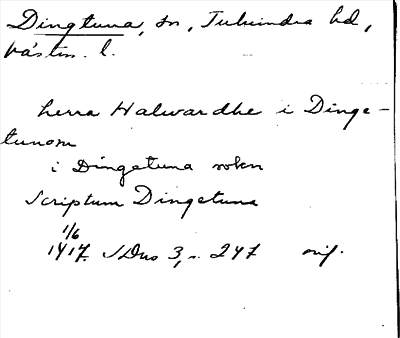 Dingtuna, sn, Tuhundra hd,
Västm. l.
herra Halwardhe i Dinge-
tunom
i Dingetuna sokn
Scriptum Dingetuna
1/6
1417. SDns 3, s. 247 orig.